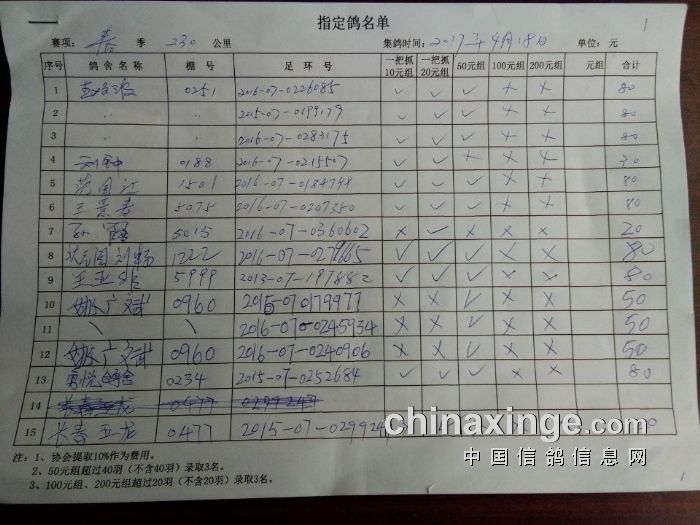 指定鸽名单 1
赛项：春 季 230 公里 集鸽时间：2017年4月18日 单位：元
序号 鸽舍名称 棚号 足环号 一把抓10元组 一把抓20元组 50元组 100元组 200元组 元组 合计
1 0251 2016-07-0226085 ✓ ✓ ✓ × × 80
2 〃 〃 2015-07-0199179 ✓ ✓ ✓ × × 80
3 〃 〃 2016-07-0283175 ✓ ✓ ✓ × × 80
4 0188 2016-07-0215507 ✓ ✓ × × × 30
5 范国江 1501 2016-07-0184744 ✓ ✓ ✓ × × 80
6 王景春 5075 2016-07-0207350 ✓ ✓ ✓ × × 80
7 孙 5015 2016-07-0360602 × ✓ × × × 20
8 状元阁刘杨 1222 2016-07-0279665 ✓ ✓ ✓ × × 80
9 王亚 5999 2013-07-197882 ✓ ✓ ✓ × × 80
10 姚广斌 0960 2015-07-0179977 × × ✓ × × 50
11 \ \ 2016-07-0245934 × × ✓ × × 50
12 姚广斌 0960 2016-07-0240906 × × ✓ × × 50
13 男悦鸽舍 0234 2015-07-0252684 ✓ ✓ ✓ × × 80
14 长春亚龙 0477 0299247
15 长春亚龙 0477 2015-07-029924
chinaxinge.com
中国信鸽信息网
注：1、协会提取10%作为费用。
2、50元组超过40羽（不含40羽）录取3名。
3、100元组、200元组超过20羽（不含20羽）录取3名。
1